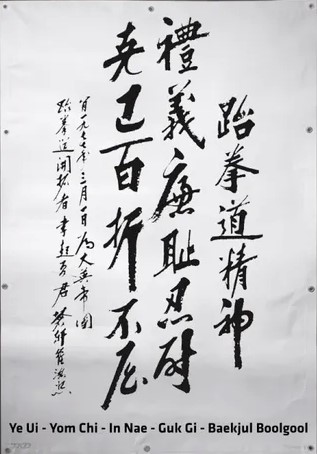 跆拳道精神
禮義廉耻忍耐
克己百折不屈
三月一日 為大英帝國
跆拳道開拓者李起夏君 蒼軒崔泓熙
Ye Ui - Yom Chi - In Nae - Guk Gi - Baekjul Boolgool